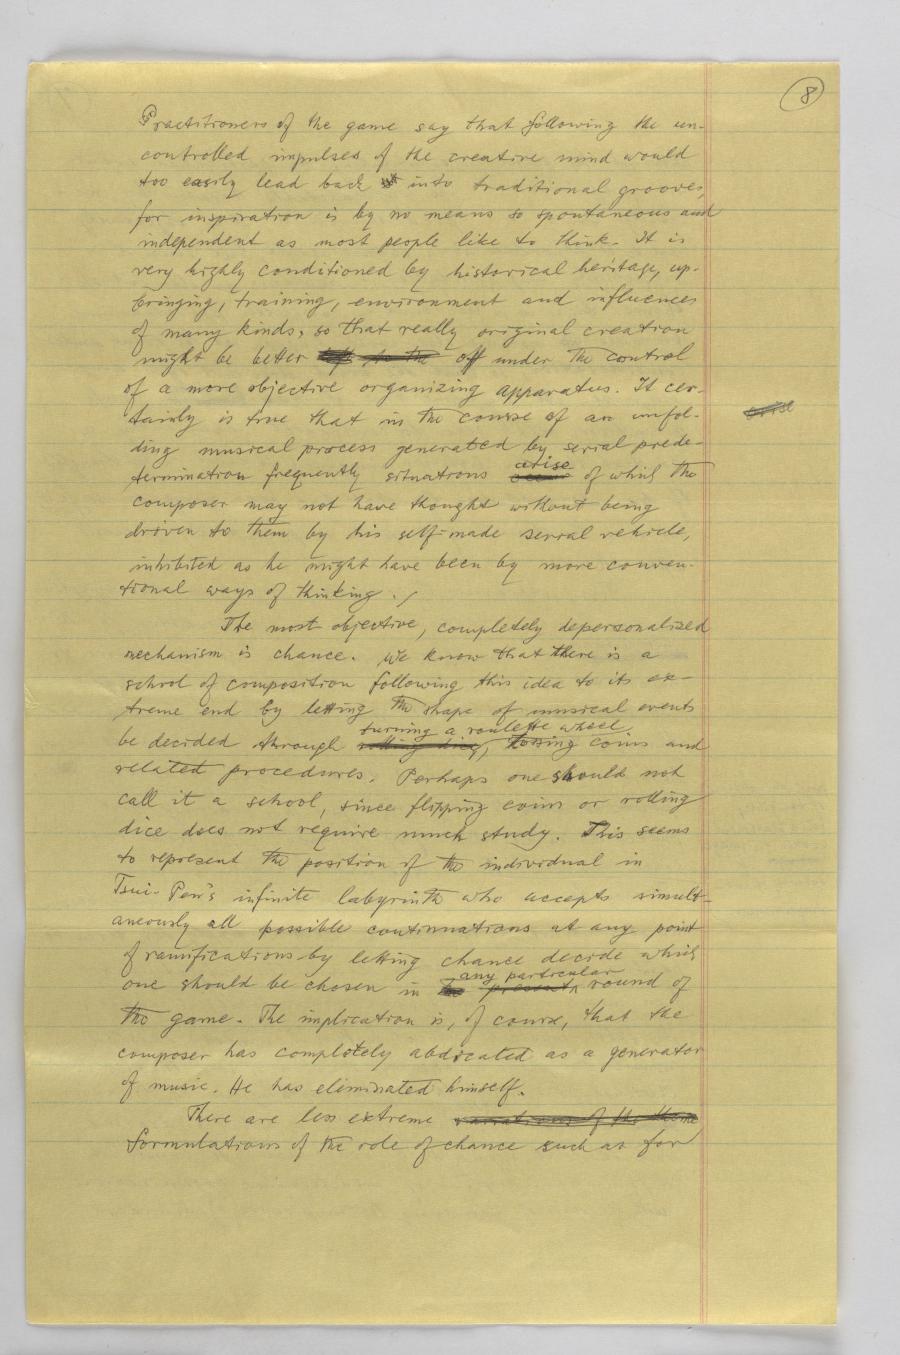 8
Practitioners of the game say that following the un-
controlled impulses of the creative mind would
too easily lead back into traditional grooves,
for inspiration is by no means so spontaneous and
independent as most people like to think. It is
very highly conditioned by historical heritage, up-
bringing, training, environment and influences
of many kinds, so that really original creation
might be better off under the control
of a more objective organizing apparatus. It cer-
tainly is true that in the course of an unfol-
arise
ding musical process generated by serial prede-
arise
termination frequently situations occur of which the
composer may not have thought without being
driven to them by his self-made serial vehicle,
inhibited as he might have been by more conven-
tional ways of thinking. /
The most objective, completely depersonalized
mechanism is chance. We know that there is a
school of composition following this idea to its ex-
treme end by letting the shape of musical events
turning a roulette wheel
be decided through rolling dice, tossing coins and
related procedures. Perhaps one should not
call it a school, since flipping coins or rolling
dice does not require much study. This seems
to represent the position of the individual in
Tsui-Pen's infinite labyrinth who accepts simult-
aneously all possible continuations at any point
of ramifications by letting chance decide which
any particular
one should be chosen in the present round of
the game. The implication is, of course, that the
composer has completely abdicated as a generator
of music. He has eliminated himself.
There are less extreme variations of the theme
formulations of the role of chance such as for